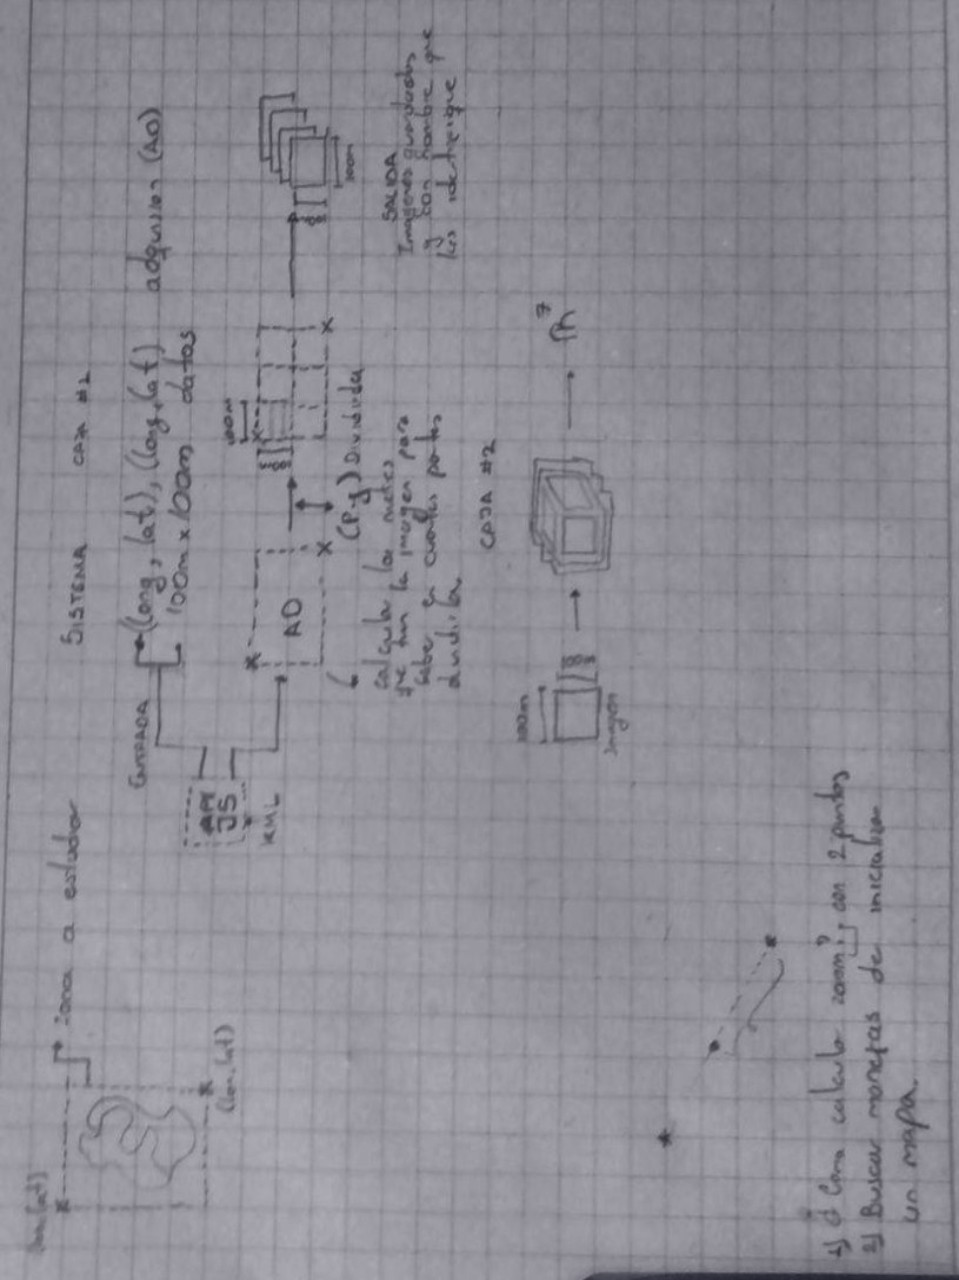 (lon, lat)
zona a estudiar
SISTEMA CAJA #2
ENTRADA
(long, lat), (long, lat) adquision (AD)
100m x 100m datos
API
JS
KML
(lon, lat)
100m
AD
(Py) Dividirla
calcular los metros
que tien la imagen para
saber en cuantas partes
dividirla.
100m
SALIDA
Imagenes guardadas
y con nombre que
las identifique
CAJA #2
100m
Imagen
R^7
1) ¿Como calculo zoom?, con 2 puntos
2) Buscar maneras de inicializar
un mapa.